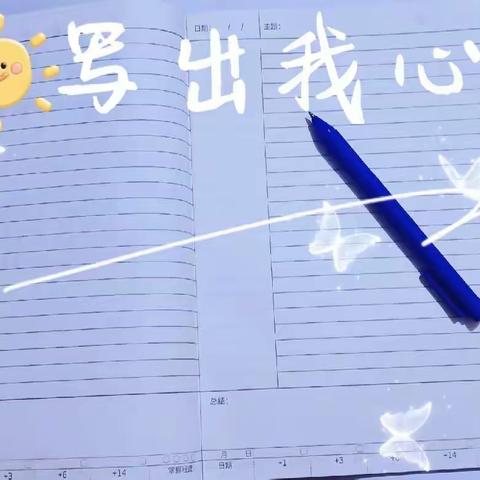 日期： / / 主题：
写出我心
总结：
月 日
+3 +6 +14 掌握程度 日期 +1 +3 +6 +14